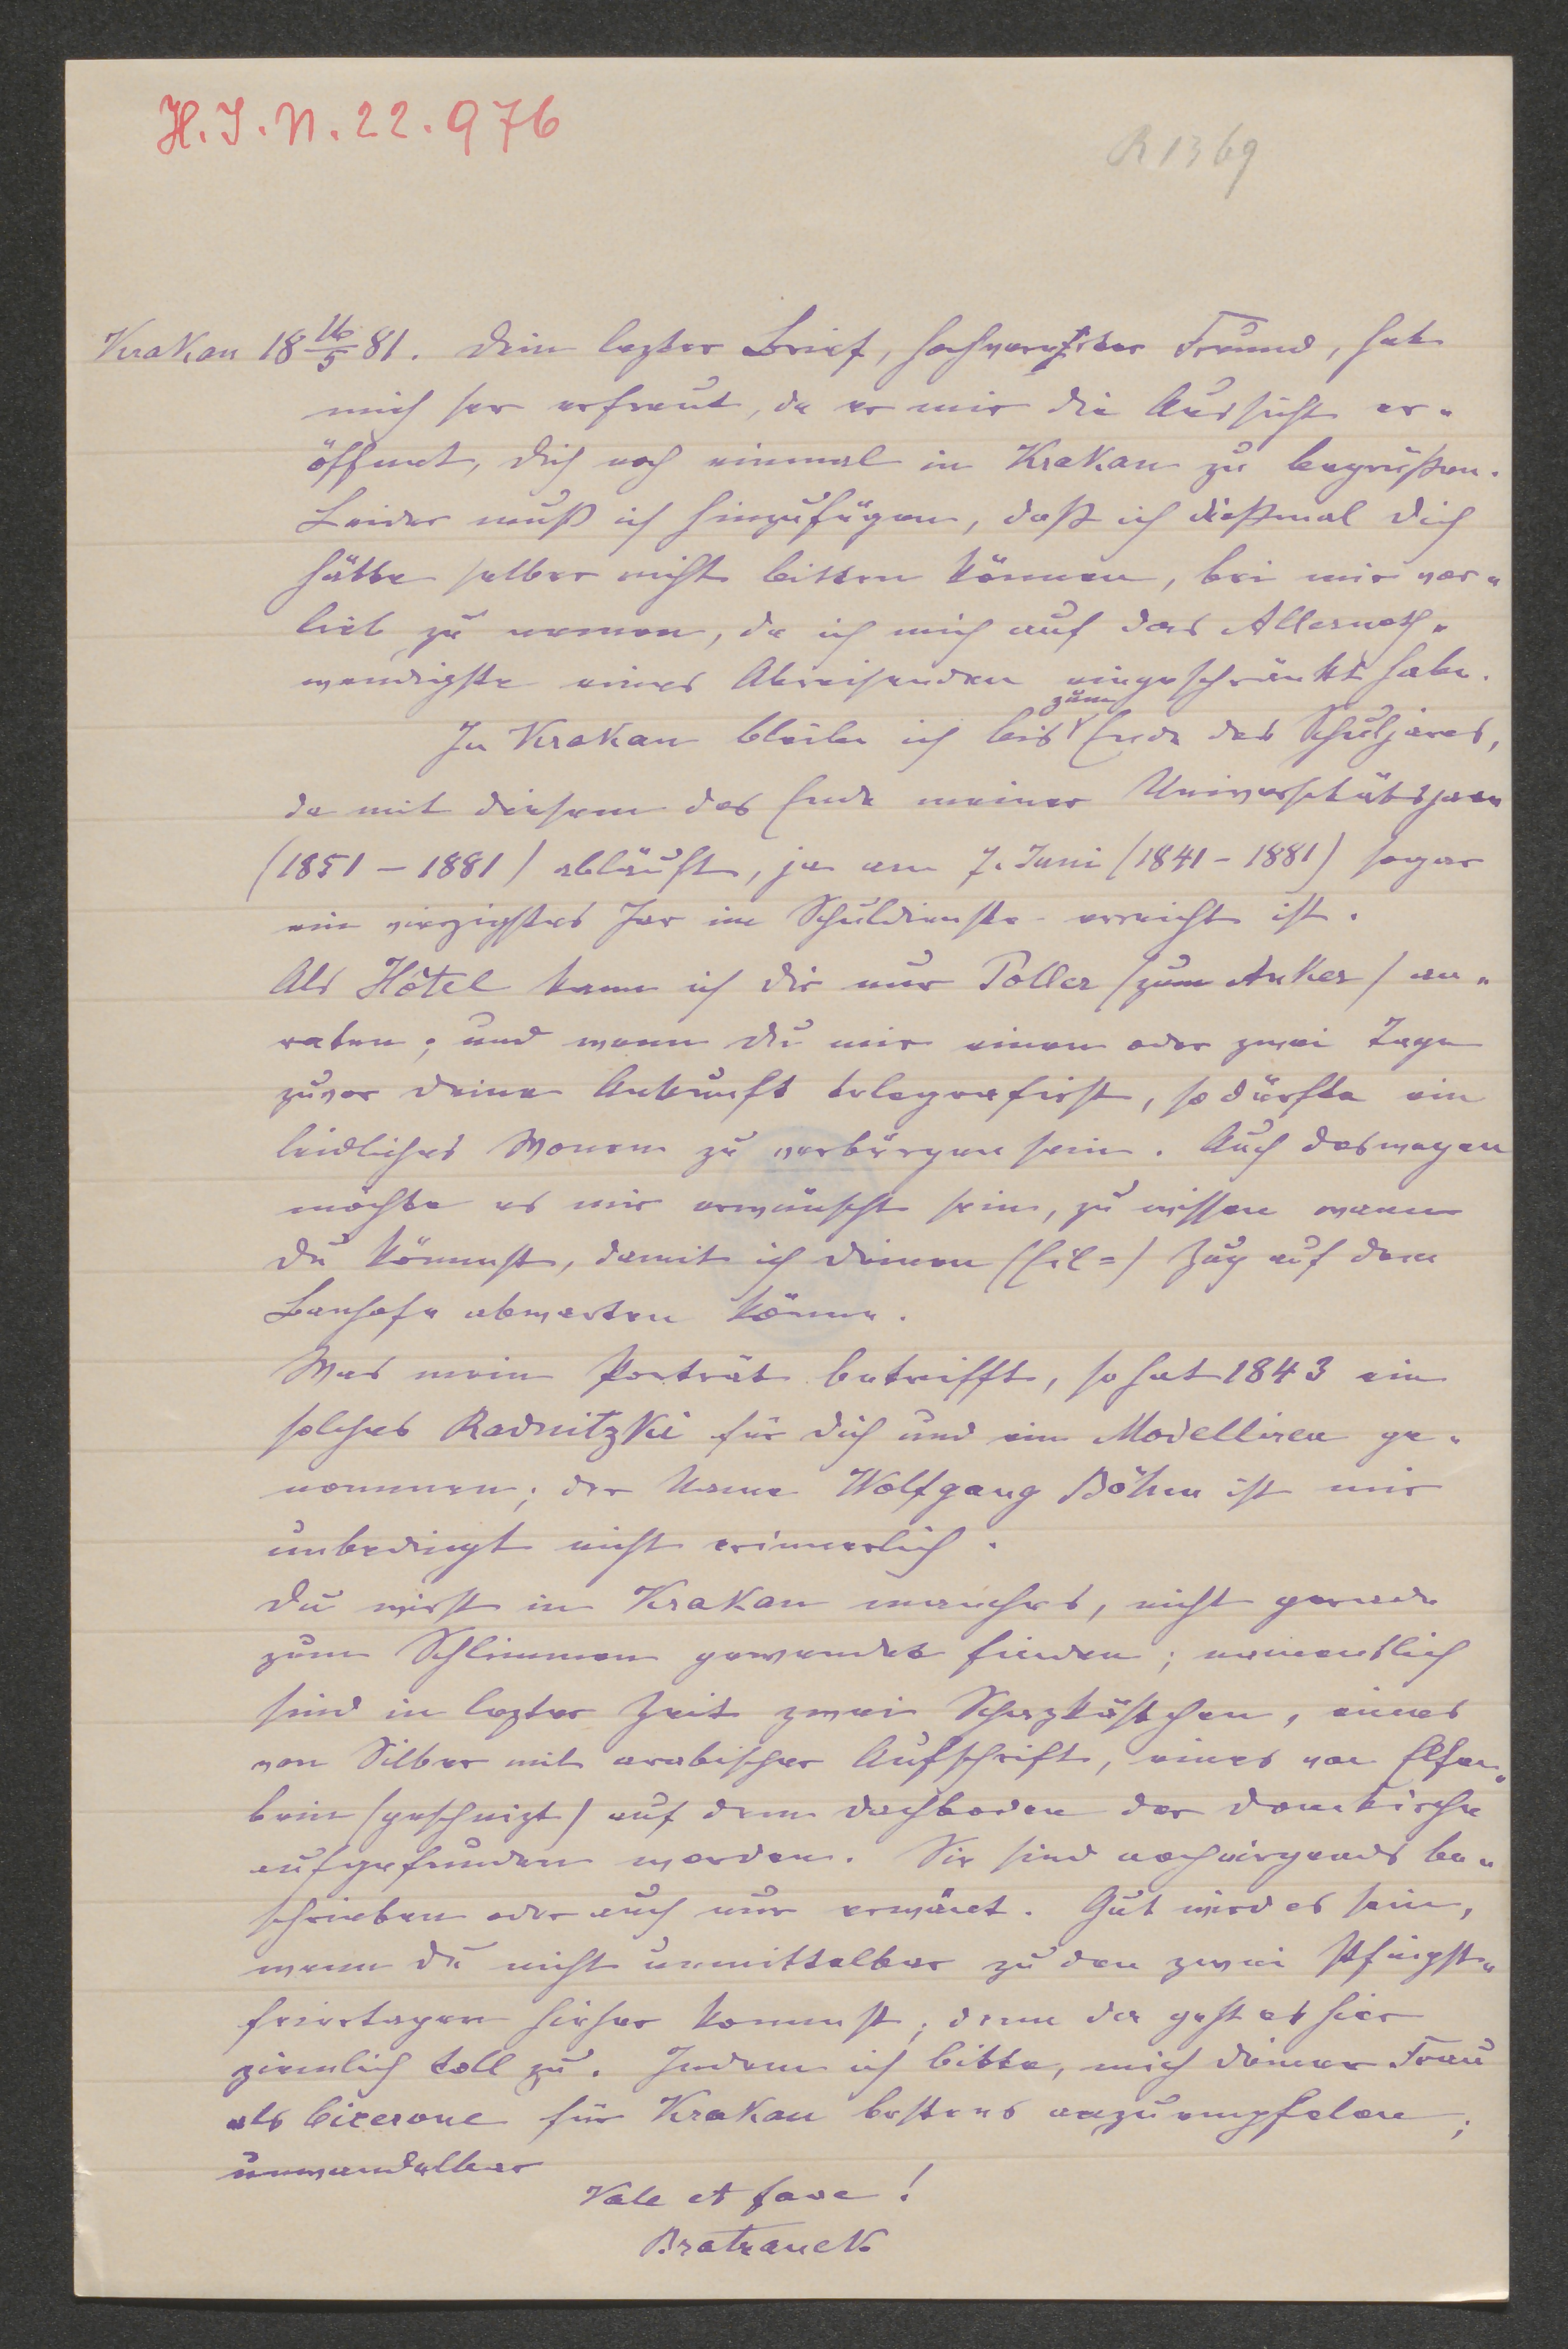 H.I.N. 22.976
R 1369
Krakau 18 16/5 81. Dein lezter Brief, hochverehrter Freund, hat
mich ser erfreut, da er mir die Aussicht er-
öffnet, Dich noch einmal in Krakau zu begrüßen.
Leider muß ich hinzufügen, daß ich dießmal Dich
hätte selber nicht bitten können, bei mir vor-
lieb zu nemen, da ich mich auf das Allernoth-
wendigste eines Abreisenden eingeschränkt habe.
In Krakau bleibe ich bis zum Ende des Schuljares,
da mit diesem das Ende meiner Universitätsjare
(1851 – 1881) abläuft, ja am 7. Juni (1841 – 1881) sogar
ein vierzigstes Jar im Schuldienste erreicht ist.
Als Hôtel kann ich Dir nur Poller (zum Anker) an-
raten; und wenn Du mir einen oder zwei Tage
zuvor Deine Ankunft telegrafirst, so dürfte ein
leidliches Wonen zu verbürgen sein. Auch deswegen
möchte es mir erwünscht sein, zu wissen wann
Du kömmst, damit ich Deinen (Eil-) Zug auf dem
Banhofe abwarten könne.
Was mein Porträt betrifft, so hat 1843 ein
solches Radnitzki für Dich und ein Modelliren ge-
nommen; der Name Wolfgang Böhm ist mir
unbedingt nicht erinnerlich.
Du wirst in Krakau manches, nicht gerade
zum Schlimmen gewendet finden; namentlich
sind in lezter Zeit zwei Schazkästchen, eines
von Silber mit arabischer Aufschrift, eines von Elfen-
bein (geschnizt) auf dem Dachboden der Domkirche
aufgefunden worden. Sie sind noch nirgends be-
schrieben oder auch nur erwänt. Gut wird es sein,
wenn Du nicht unmittelbar zu den zwei Pfingst-
feiertagen hieher kommst; denn da geht es hier
ziemlich toll zu. Indem ich bitte, mich Deiner Frau
als Cicerone für Krakau bestens anzuempfelen;
unwandelbar
Vale et fave!
Bratranek